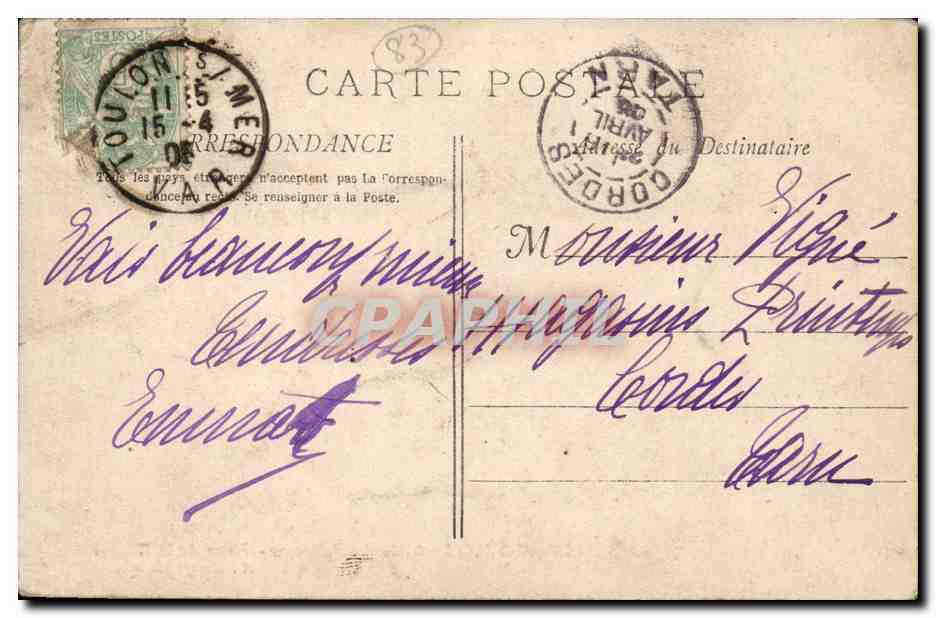 83
CARTE POSTALE
POSTES
TOULON S/MER
11 15
15 -4
VAR
CORDES
TARN
AVRIL
RRESPONDANCE
Adresse du Destinataire
Tous les pays étrangers n'acceptent pas La Correspon-
dance au recto. Se renseigner à la Poste.
Vais beaucoup mieux
Tendresses
Emma
Monsieur Vigné
Magasins Printemps
Cordes
Tarn
CPAPHIL